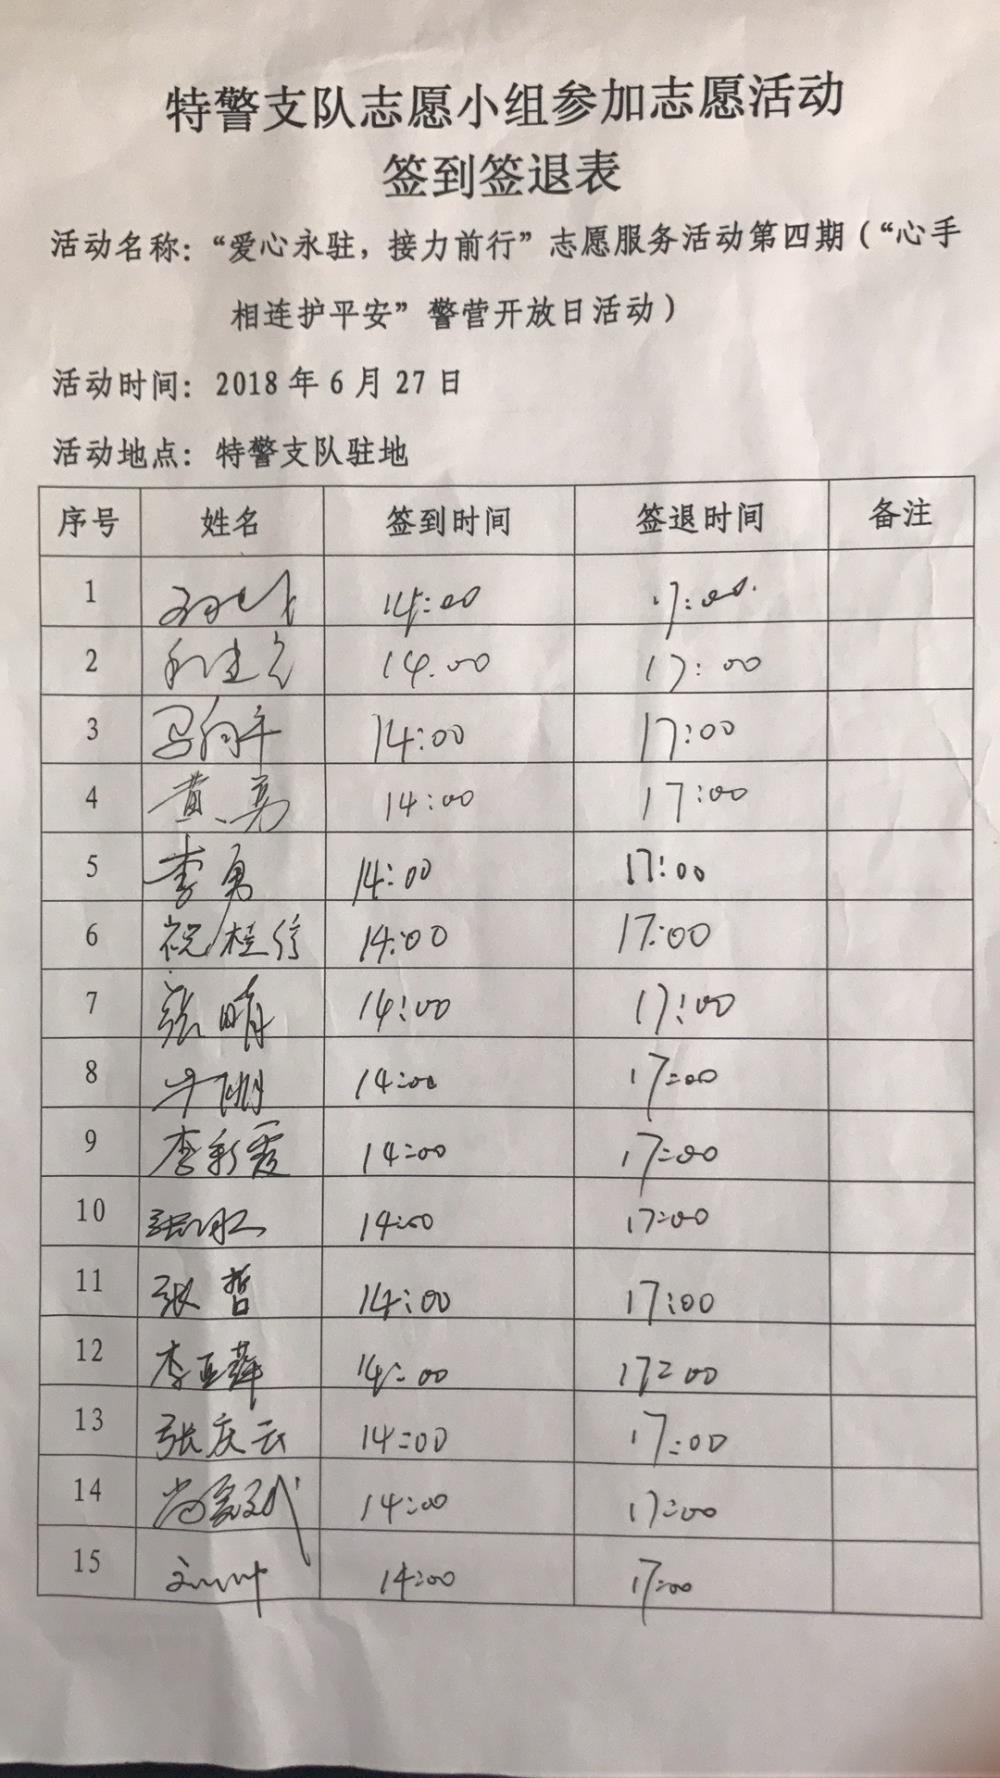 特警支队志愿小组参加志愿活动
签到签退表
活动名称：“爱心永驻，接力前行”志愿服务活动第四期（“心手
相连护平安”警营开放日活动）
活动时间：2018 年 6 月 27 日
活动地点：特警支队驻地
序号 姓名 签到时间 签退时间 备注
1 14:00 17:00.
2 14.00 17:00
3 14:00 17:00
4 黄勇 14:00 17:00
5 李勇 14:00 17:00
6 祝桂信 14:00 17:00
7 张晴 14:00 17:00
8 14:00 17:00
9 李彩霞 14:00 17:00
10 14:00 17:00
11 张哲 14:00 17:00
12 李亚萍 14:00 17:00
13 张庆云 14:00 17:00
14 14:00 17:00
15 14:00 17:00